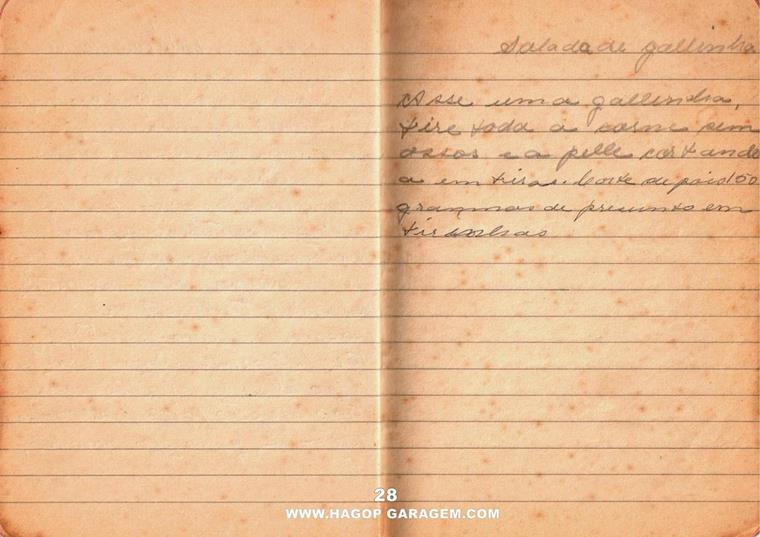 Salada de gallinha
Asse uma gallinha,
tire toda a carne sem
ossos e a pelle cortando
a em tiras. Corte depois 150
grammas de presunto em
tirinhas
28
WWW.HAGOP GARAGEM.COM